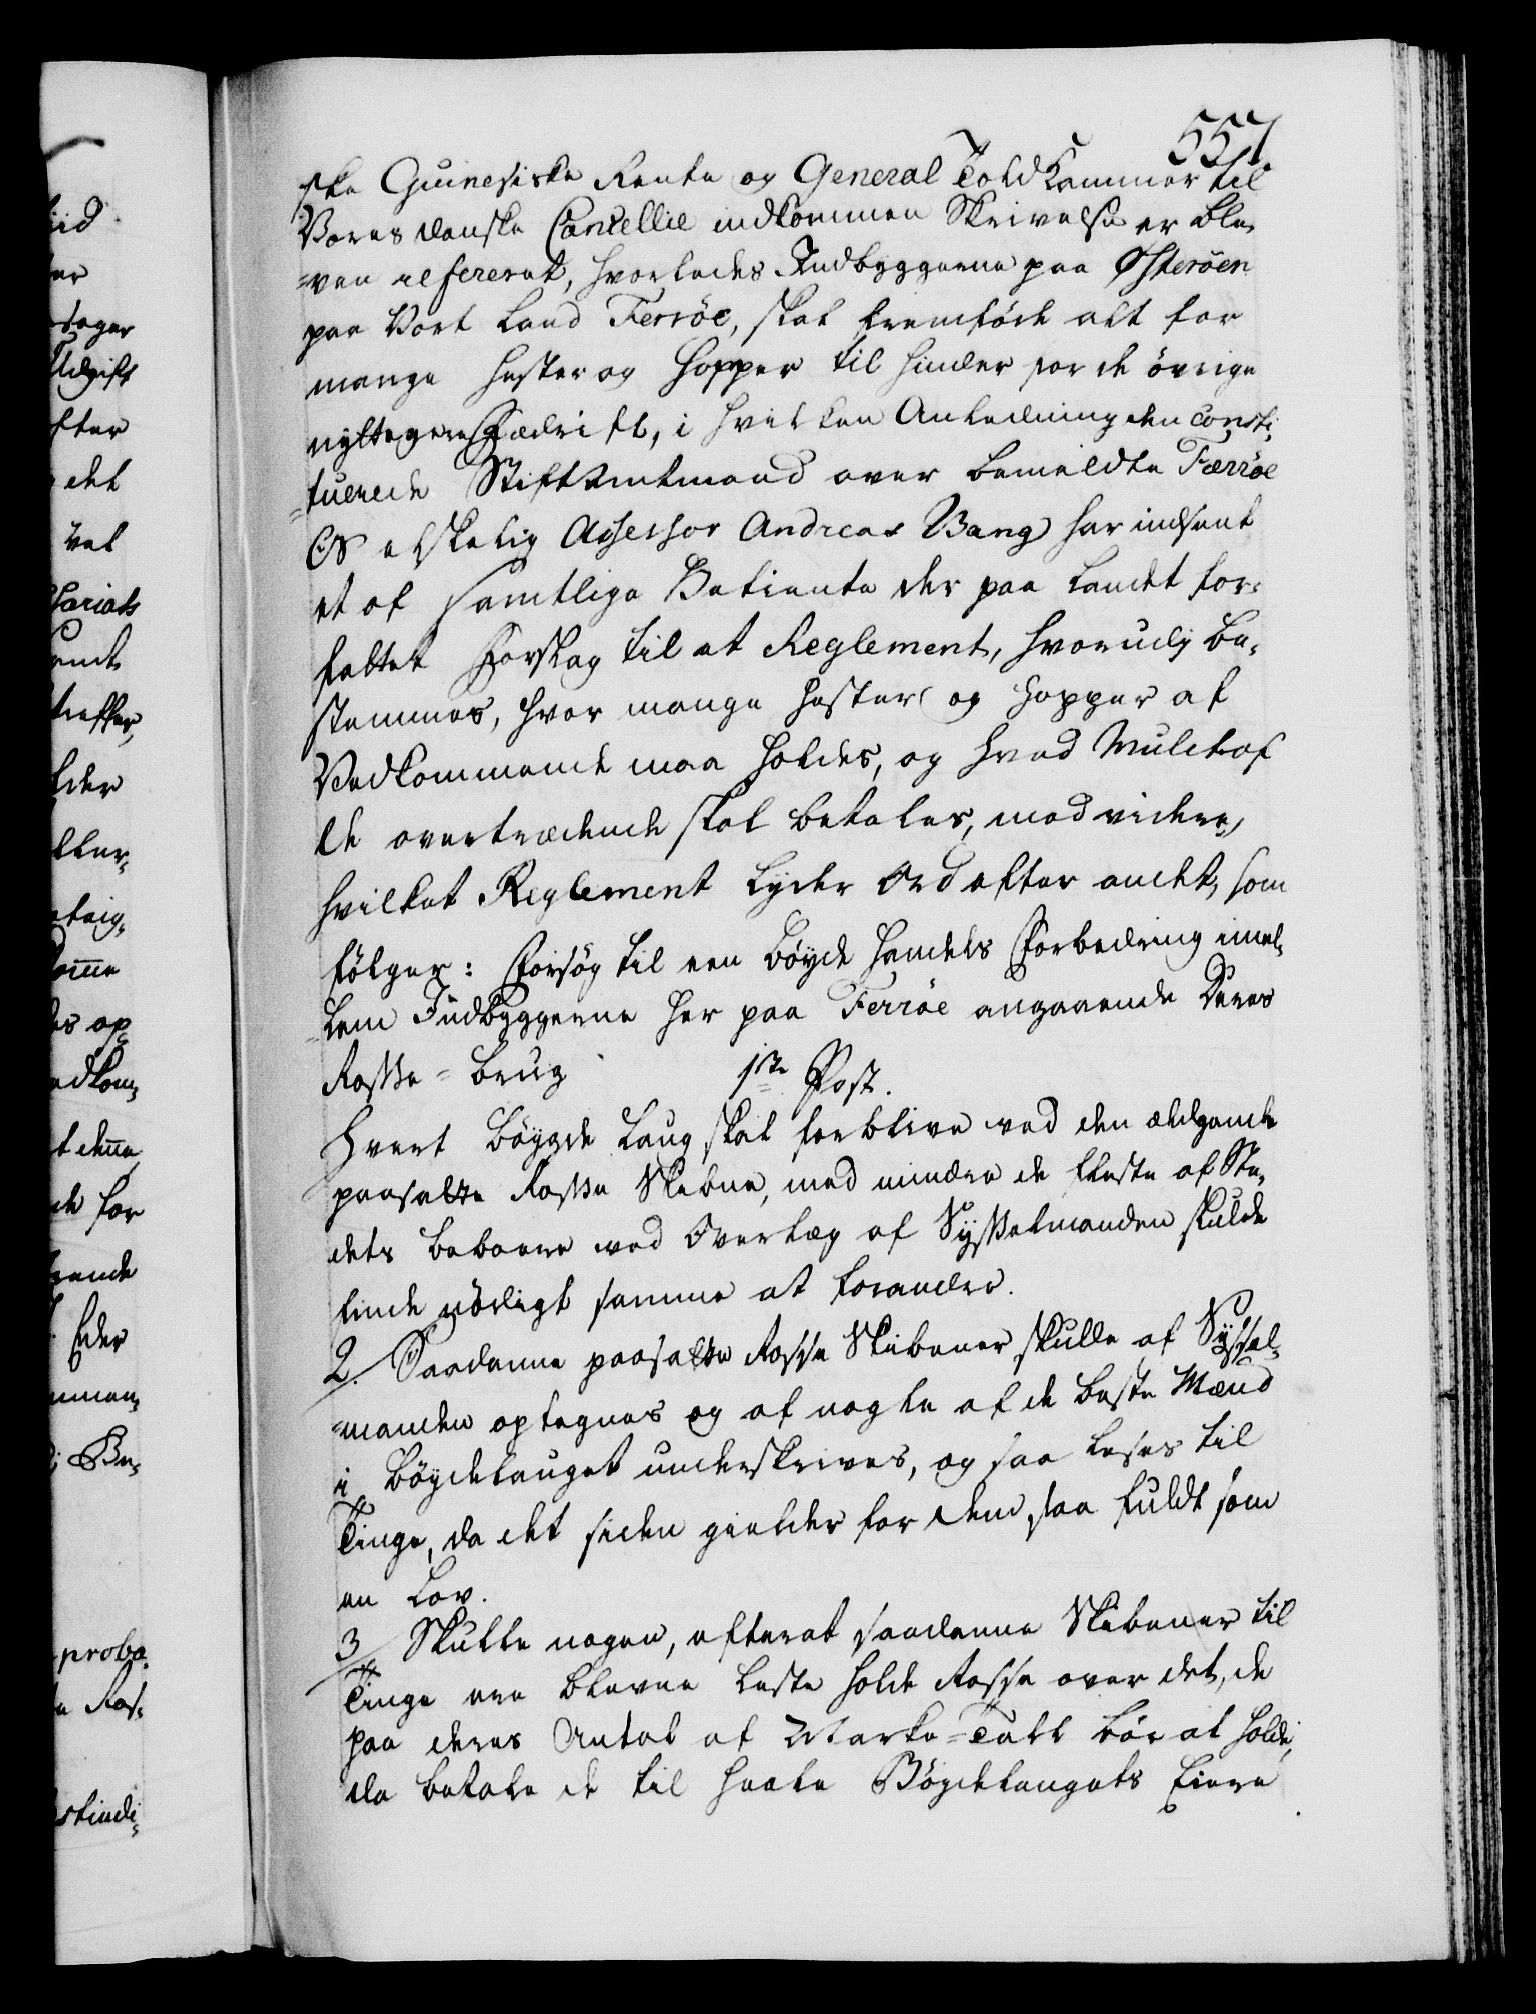 557
ske Guinesiske Rente og General Told Kammer til
Vores danske Cancellie indkommen Skrivelse er ble,
=ven refereret, hvorledes Indbyggerne paa Østeröen
paa Vort Land Ferröe, skal fremföde alt for
mange Hester og Hopper til Hinder for de övrige
nyttigere Fædrift, i hvilken Anledning den consti,
=tuerede Stiftamtmand over bemeldte Færröe
Os elskelig Assessor Andreas Bang har indsent
et af samtlige Betiente der paa Landet for,
fattet Forslag til et Reglement, hvorudj be,
stemmes, hvor mange Hester og Hopper af
Vedkommende maa holdes, og hvad Mulct af
de overtrædende skal betales, med videre,
hvilket Reglement lyder Ord efter andet, som
fölger: Forsög til een Böyde Handels Forbedring imel,
lem Indbyggerne her paa Ferröe angaaende Deres
Rosse=brug 1ste Post.
Hvert Böygde Laug skal forblive ved den ældgamle
paasatte Rosse Skibne, med mindre de fleste af Ste,
dets beboere ved Overlæg af Sysselmanden skulde
finde nödigt samme at forandre.
2. Saadanne paasatte Rosse Skibener skulle af Syssel,
=manden optegnes og af nogle af de beste Mænd
i Böydelauget underskrives, og saa leses til
Tinge, da det siden gielder for dem, saa fuldt som
en Lov.
3 Skulle nogen, efterat saadanne Skibener til
Tinge ere blevne leste holde Rosse over det, de
paa deres Antal af Marke=Tall bör at holde,
da betale de til heele Böydelaugets Eiere